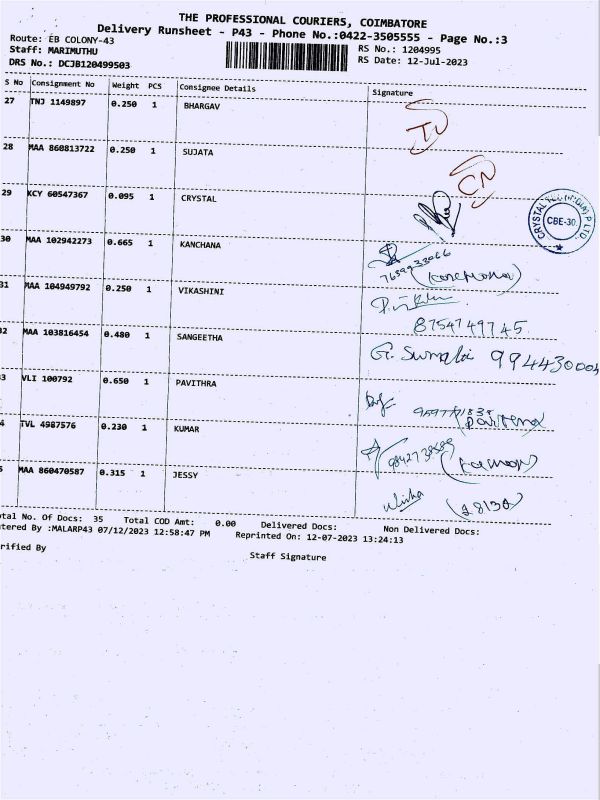 THE PROFESSIONAL COURIERS, COIMBATORE
Delivery Runsheet - P43 - Phone No.:0422-3505555 - Page No.:3
Route: EB COLONY-43
RS No.: 1204995
Staff: MARIMUTHU
RS Date: 12-Jul-2023
DRS No.: DCJB120499503
S No Consignment No Weight PCS Consignee Details Signature
27 TNJ 1149897 0.250 1 BHARGAV
28 MAA 860813722 0.250 1 SUJATA
CN
29 KCY 60547367 0.095 1 CRYSTAL
CBE-30
30 MAA 102942273 0.665 1 KANCHANA
31 MAA 104949792 0.250 1 VIKASHINI
8754749745
32 MAA 103816454 0.480 1 SANGEETHA
G. Sumathi 994430004
3 VLI 100792 0.650 1 PAVITHRA
4 TVL 4987576 0.230 1 KUMAR
5 MAA 860470587 0.315 1 JESSY
otal No. Of Docs: 35 Total COD Amt: 0.00 Delivered Docs: Non Delivered Docs:
tered By :MALARP43 07/12/2023 12:58:47 PM Reprinted On: 12-07-2023 13:24:13
rified By
Staff Signature